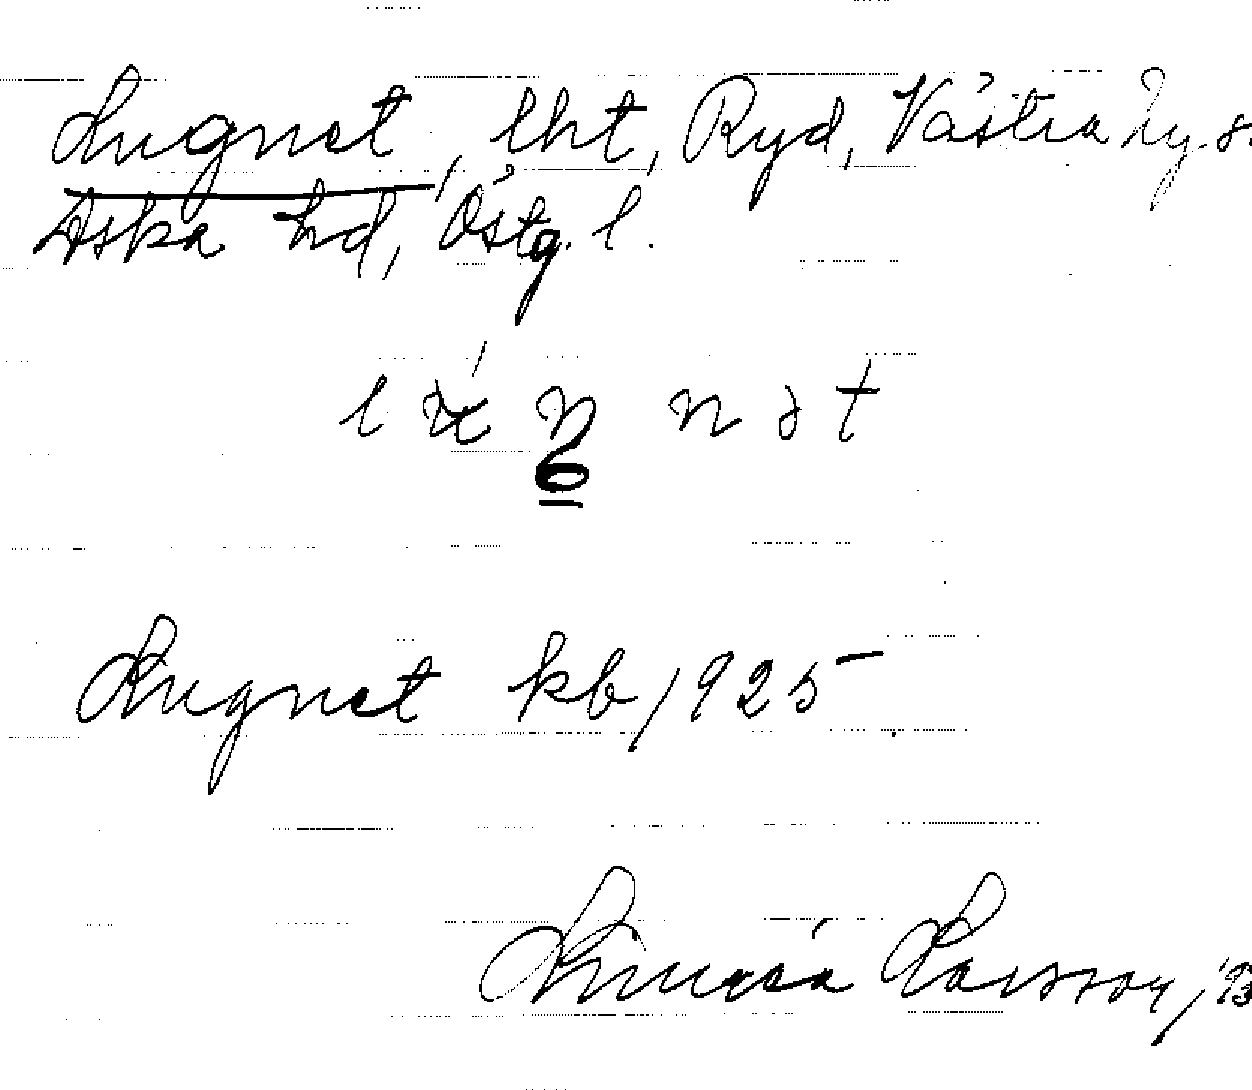 Lugnet, lht, Ryd, Västra Ny s.
Aska hd, Östg. l.
Lugnet kb 1925
Linnéa Larsson, '93